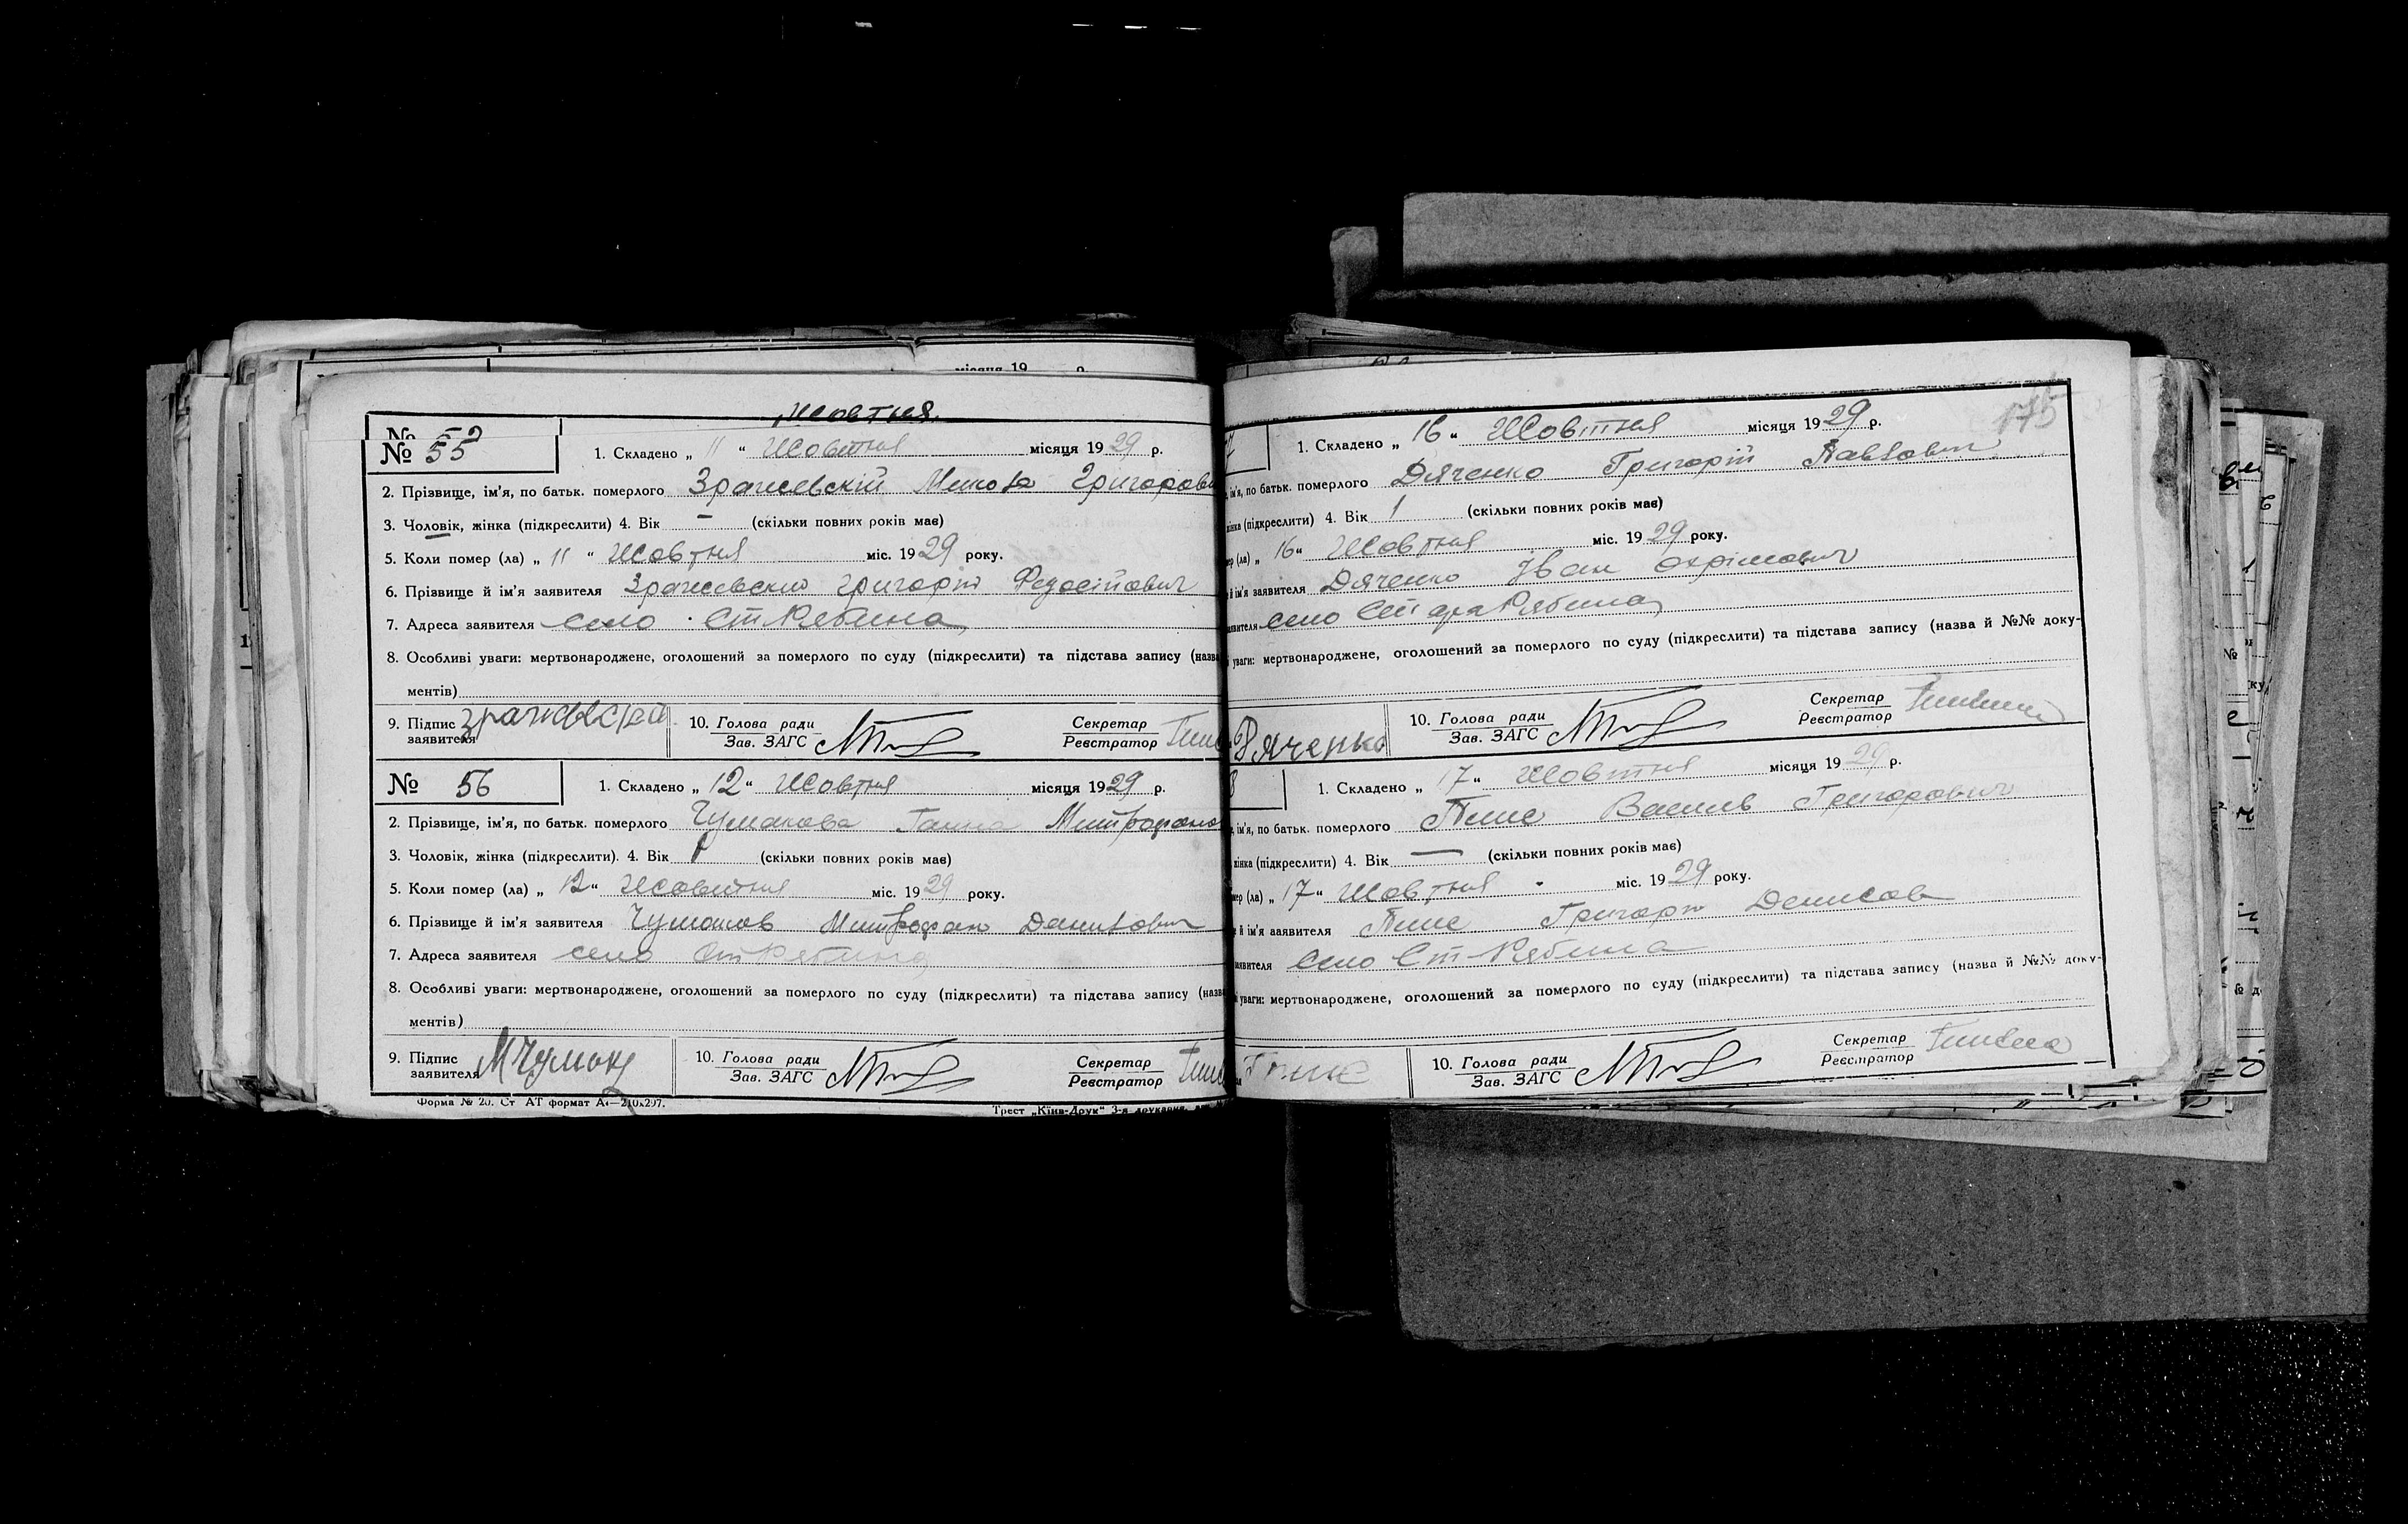 місяця 19 р.
Жовтня.
№ 55
1. Складено „ 11 “ Жовтня місяця 1929 р.
2. Прізвище, ім'я, по батьк. померлого Зражевскій Микола Григорови
3. Чоловік, жінка (підкреслити) 4. Вік – (скільки повних років має)
5. Коли помер (ла) „ 11 “ Жовтня міс. 1929 року.
6. Прізвище й ім'я заявителя Зражевский Григорій Федосійович
7. Адреса заявителя село Ст Рябина
8. Особливі уваги: мертвонароджене, оголошений за померлого по суду (підкреслити) та підстава запису (назва
ментів)
9. Підпис заявителя
10. Голова ради
Зав. ЗАГС
Секретар
Реєстратор
№ 56
1. Складено „ 12 “ Жовтня місяця 1929 р.
2. Прізвище, ім'я, по батьк. померлого Чумакова Ганна Митрофано
3. Чоловік, жінка (підкреслити). 4. Вік (скільки повних років має)
5. Коли помер (ла) „ 12 “ Жовтня міс. 1929 року.
6. Прізвище й ім'я заявителя Чумаков Митрофан Данилович
7. Адреса заявителя село Ст Рябина
8. Особливі уваги: мертвонароджене, оголошений за померлого по суду (підкреслити) та підстава запису (назва
ментів)
9. Підпис заявителя МЧумак
10. Голова ради
Зав. ЗАГС
Секретар
Реєстратор
Форма № 20. Ст АТ формат А4—210x297.
Трест „Київ-Друк“ 3-я друкарня,
175
7
1. Складено „ 16 “ Жовтня місяця 1929 р.
ім'я, по батьк. померлого Дяченко Григорій Павлович
жінка (підкреслити) 4. Вік 1 (скільки повних років має)
мер (ла) „ 16 “ Жовтня міс. 1929 року.
й ім'я заявителя Дяченко Іван Охрімович
заявителя село Стара Рябина
уваги: мертвонароджене, оголошений за померлого по суду (підкреслити) та підстава запису (назва й №№ доку-
Дяченко
10. Голова ради
Зав. ЗАГС
Секретар
Реєстратор
8
1. Складено „ 17 “ Жовтня місяця 1929 р.
ім'я, по батьк. померлого Василь Григорович
жінка (підкреслити) 4. Вік — (скільки повних років має)
мер (ла) „ 17 “ Жовтня міс. 1929 року.
й ім'я заявителя Григорій Денисов
заявителя Село Ст-Рябина
уваги: мертвонароджене, оголошений за померлого по суду (підкреслити) та підстава запису (назва й №№ доку-
10. Голова ради
Зав. ЗАГС
Секретар
Реєстратор